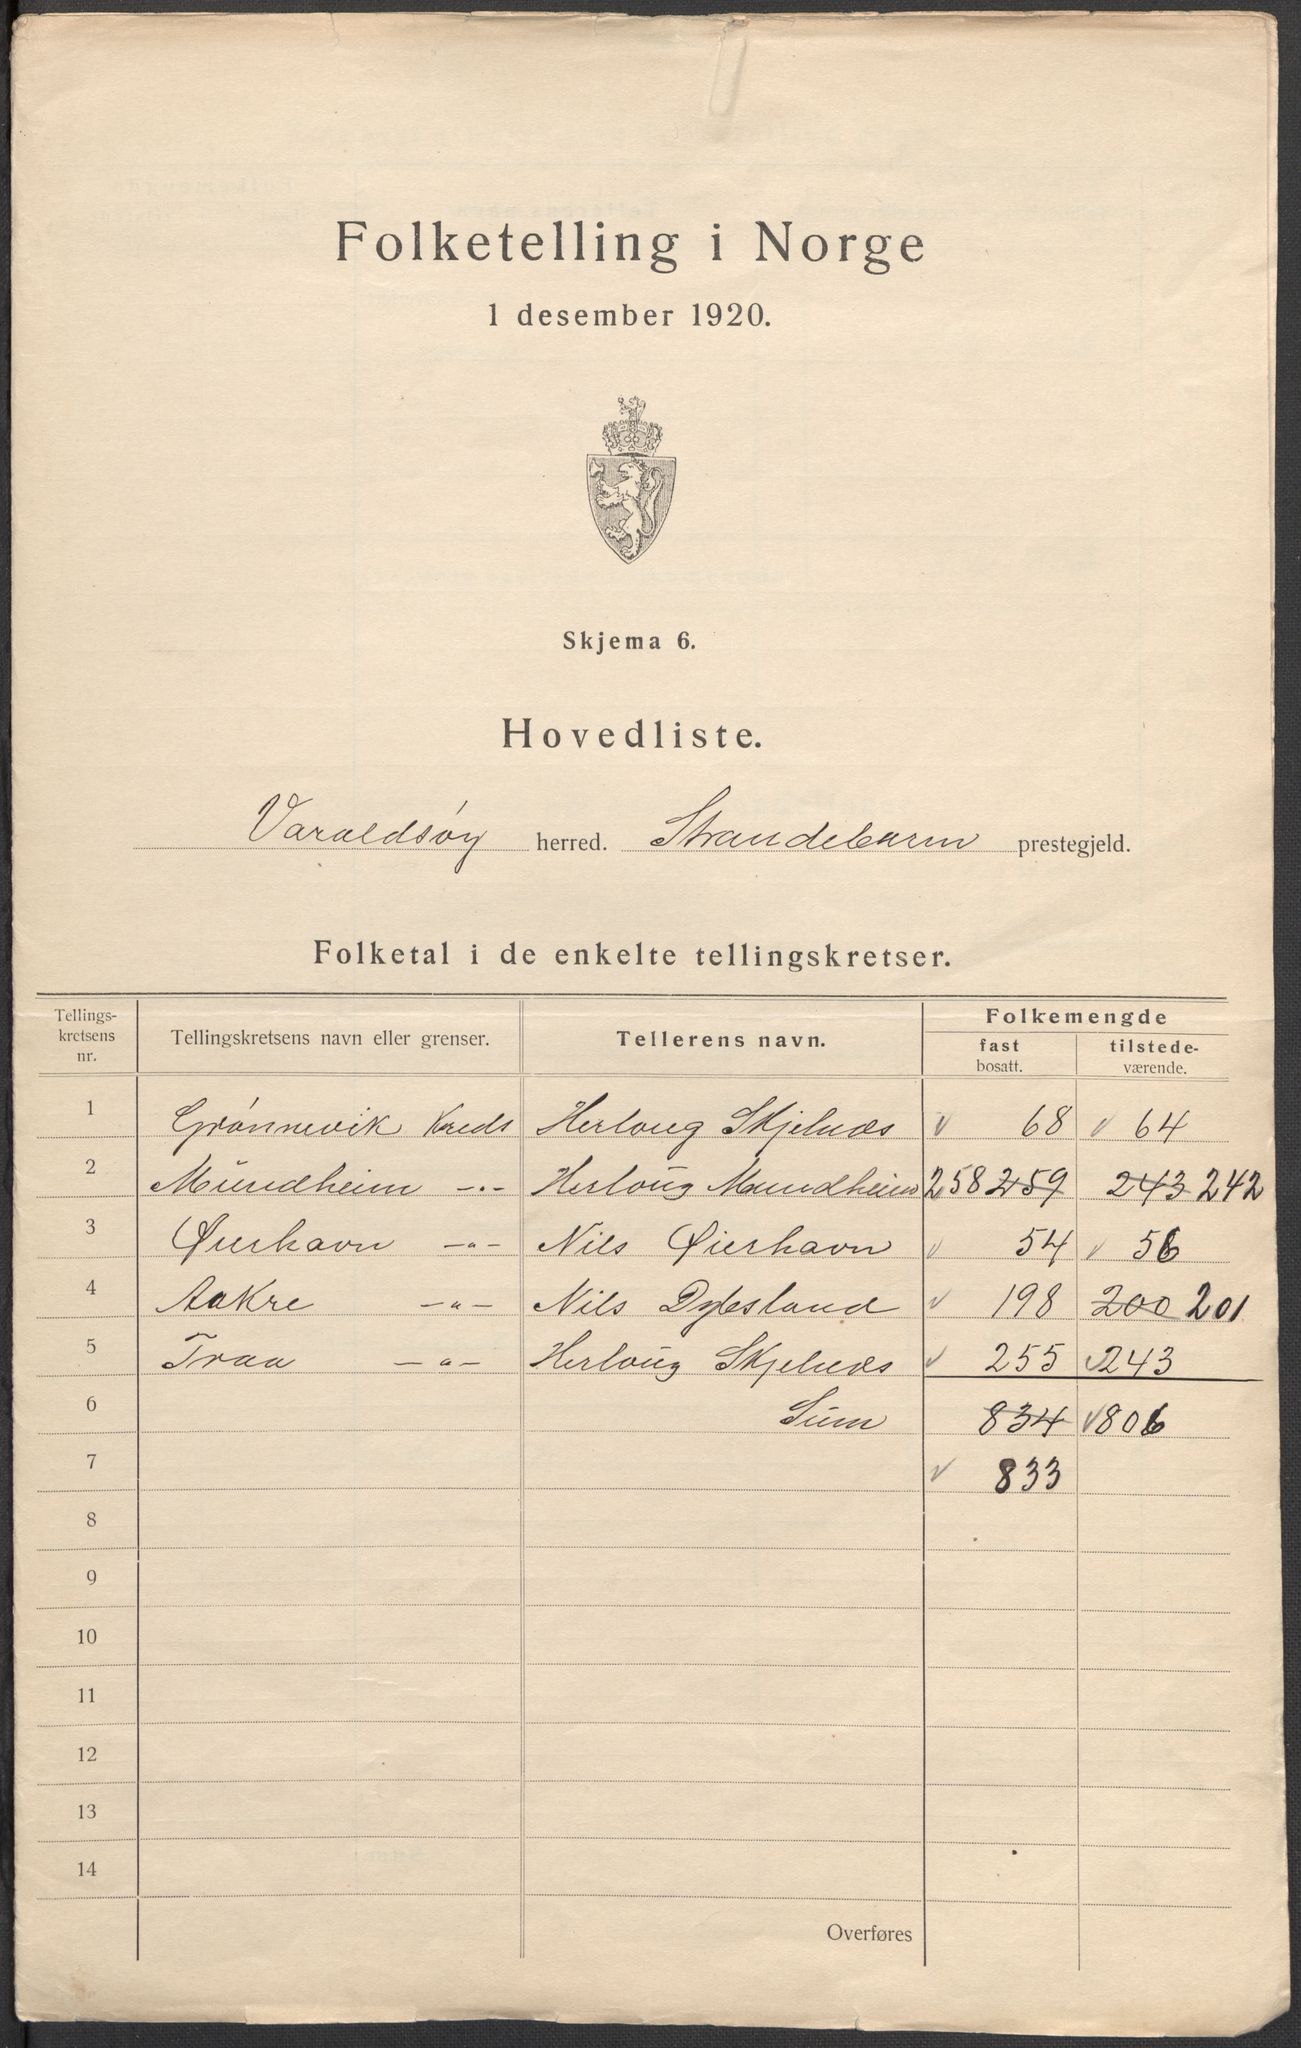 Folketelling i Norge
1 desember 1920.
Skjema 6.
Hovedliste.
Varaldsøy herred. Strandebarm prestegjeld.
Folketal i de enkelte tellingskretser.
Tellings-kretsens nr. Tellingskretsens navn eller grenser. Tellerens navn. Folkemengde
fast bosatt. tilstede-værende.
1 Grønnevik Kreds Herloug Skjelnes 68 64
2 Mundheim -"- Herloug Mundheim 258 259 243 242
3 Øierhavn -"- Nils Øierhavn 54 56
4 Aakre -"- Nils Dybsland 198 200 201
5 Traa -"- Herloug Skjelnes 255 243
6 Sum 834 806
7 833
8
9
10
11
12
13
14
Overføres